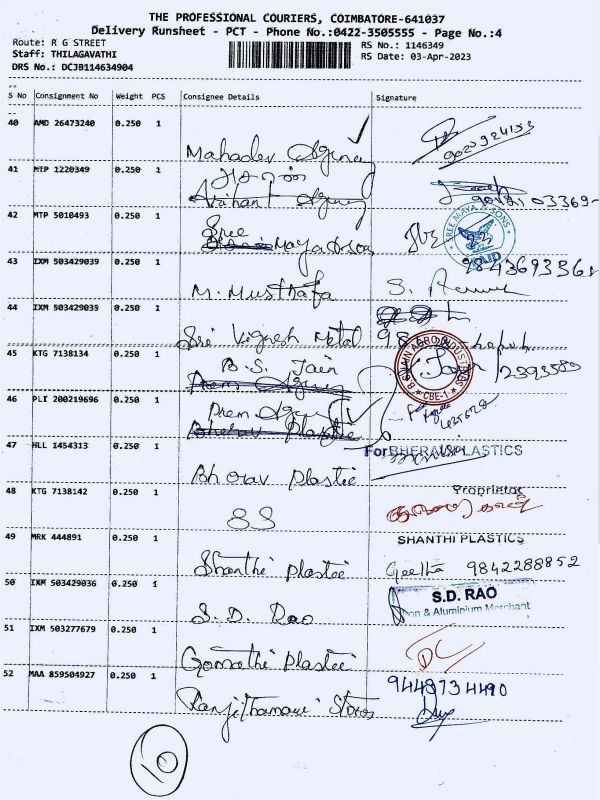 THE PROFESSIONAL COURIERS, COIMBATORE-641037
Delivery Runsheet - PCT - Phone No.:0422-3505555 - Page No.:4
Route: R G STREET
RS No.: 1146349
Staff: THILAGAVATHI
RS Date: 03-Apr-2023
DRS No.: DCJB114634904
S No Consignment No Weight PCS Consignee Details Signature
40 AMD 26473240 0.250 1
Mahadev Agency
41 MTP 1220349 0.250 1
Arihant Agency
42 MTP 5010493 0.250 1
Sree
SREE MAYA & SONS
PAID
43 IXM 503429039 0.250 1
M. Musthafa
44 IXM 503429035 0.250 1
Sri Vignesh Metal
45 KTG 7138134 0.250 1
B.S. Jain
B.S. JAIN AGRO INDUSTRIES
CBE-1
Prem Agency
46 PLI 200219696 0.250 1
Prem Agency
Bherav Plastic
47 HLL 1454313 0.250 1
For BHERAV PLASTICS
Bhorav Plastic
Proprietor
48 KTG 7138142 0.250 1
SS
49 MRK 444891 0.250 1
SHANTHI PLASTICS
Shanthi Plastic
Geetha 9842288852
50 IXM 503429036 0.250 1
S.D. RAO
Iron & Aluminium Merchant
S. D. Rao
51 IXM 503277679 0.250 1
Gomathi Plastic
52 MAA 859504927 0.250 1
9448734490
Ranjithamani Stores
10